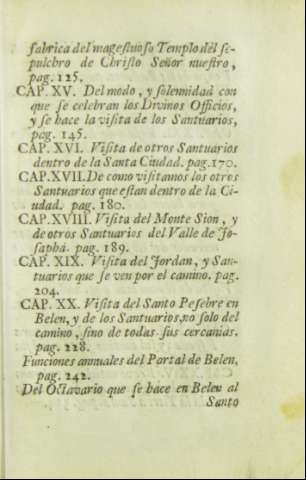 fabrica del magestuoso Templo del se-
pulchro de Christo Señor nuestro,
pag. 125.
CAP. XV. Del modo, y solemnidad con
que se celebran los Divinos Officios,
y se hace la visita de los Santuarios,
pag. 145.
CAP. XVI. Visita de otros Santuarios
dentro de la Santa Ciudad. pag. 170.
CAP. XVII. De como visitamos los otros
Santuarios que estan dentro de la Ci-
udad. pag. 180.
CAP. XVIII. Visita del Monte Sion, y
de otros Santuarios del Valle de Jo-
saphà. pag. 189.
CAP. XIX. Visita del Jordan, y San-
tuarios que se ven por el camino. pag.
204.
CAP. XX. Visita del Santo Pesebre en
Belen, y de los Santuarios, no solo del
camino, sino de todas sus cercanias.
pag. 228.
Funciones annuales del Portal de Belen,
pag. 242.
Del Octavario que se hace en Belen al
Santo